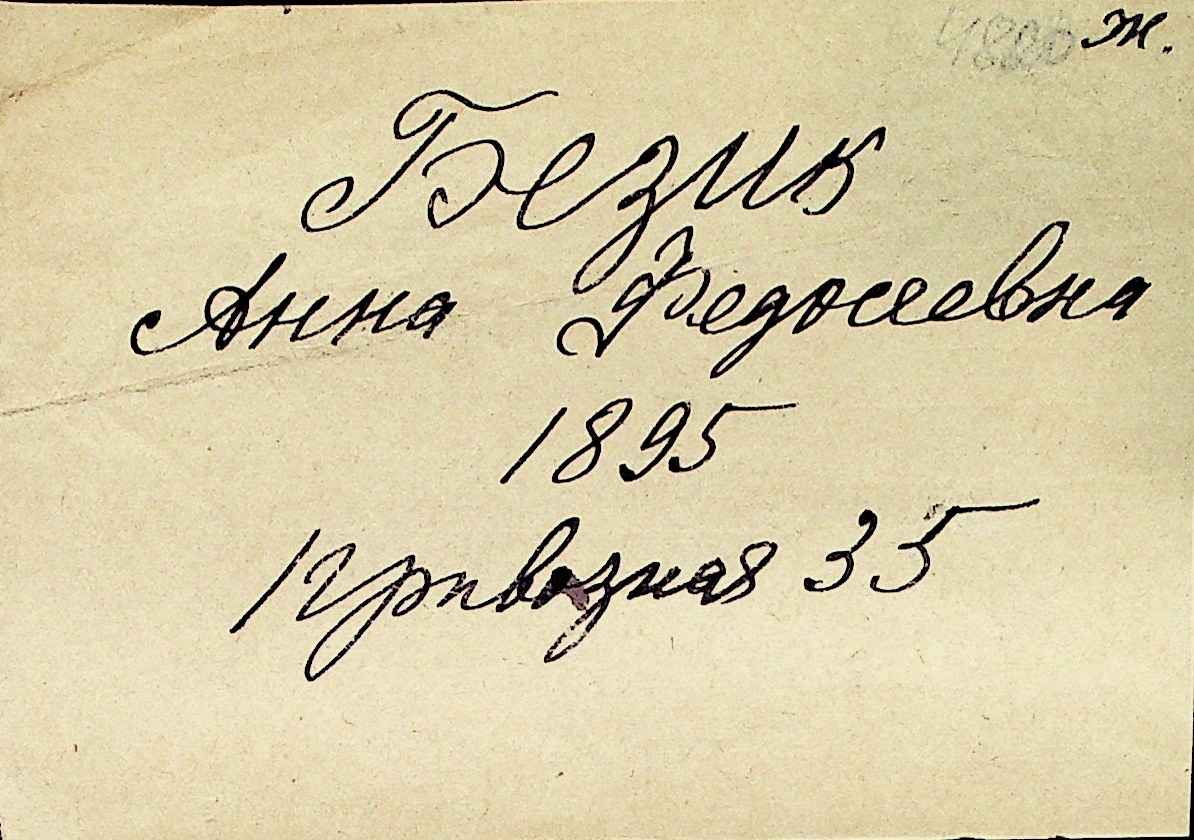 ж.
Безик
Анна Федосеевна
1895
Привозная 35